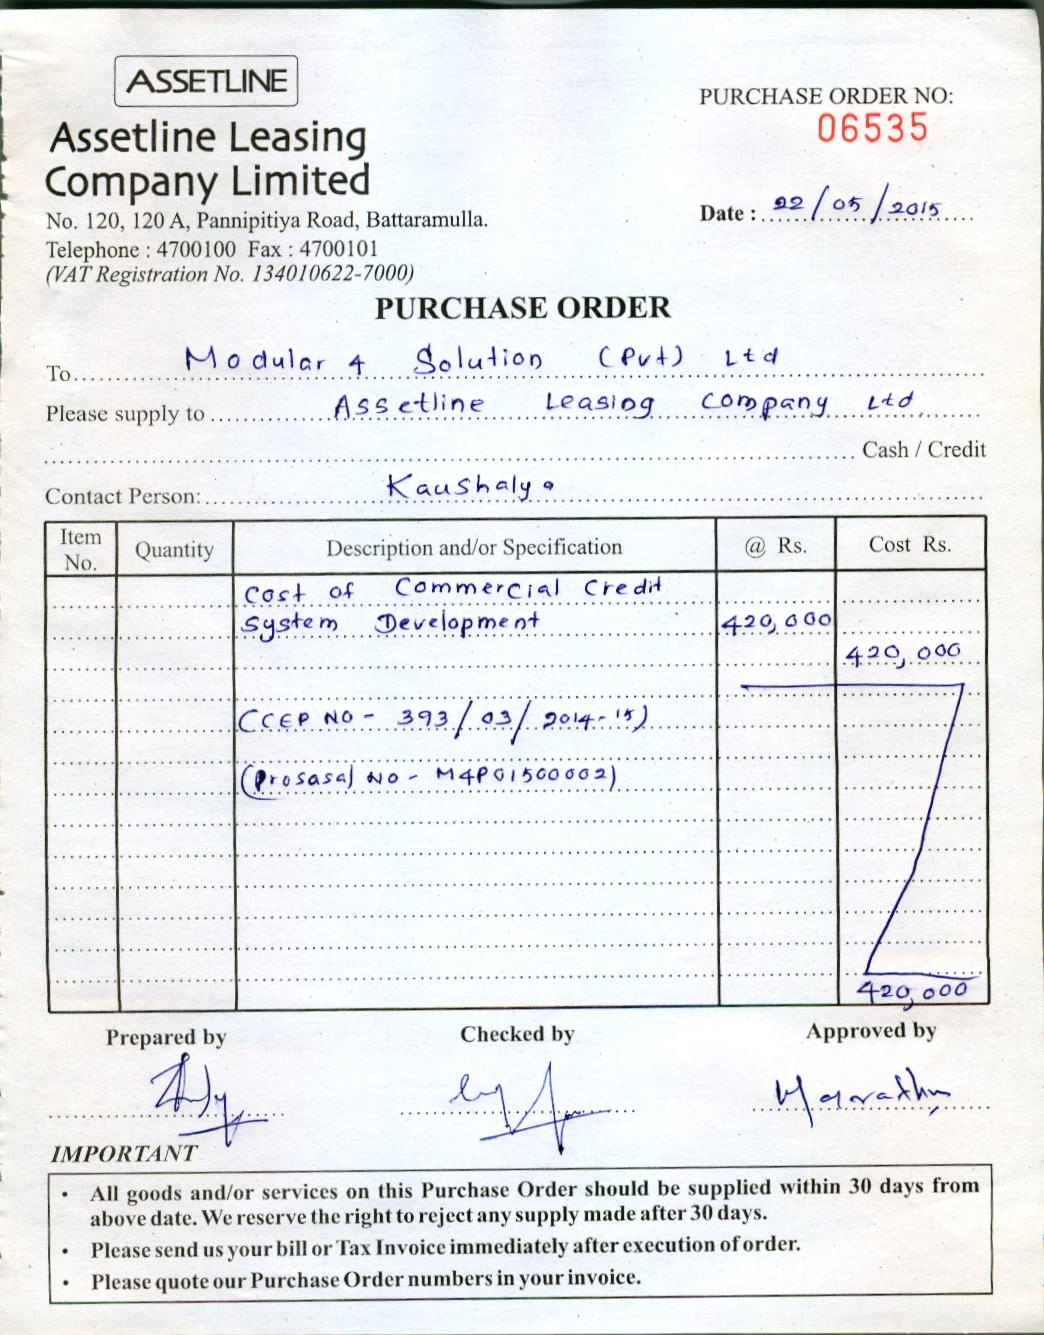 ASSETLINE
Assetline Leasing
Company Limited
No. 120, 120 A, Pannipitiya Road, Battaramulla.
Telephone : 4700100 Fax : 4700101
(VAT Registration No. 134010622-7000)
PURCHASE ORDER NO:
06535
Date : 22/05/2015
PURCHASE ORDER
To Modular 4 Solution (Pvt) Ltd
Please supply to Assetline Leasing Company Ltd
Cash / Credit
Contact Person: Kaushalya
Item No. Quantity Description and/or Specification @ Rs. Cost Rs.
Cost of Commercial Credit
System Development 420,000
420,000
(CCEP NO - 393/03/2014-15)
(Prosasal NO - M4P01500002)
420,000
Prepared by Checked by Approved by
IMPORTANT
• All goods and/or services on this Purchase Order should be supplied within 30 days from
above date. We reserve the right to reject any supply made after 30 days.
• Please send us your bill or Tax Invoice immediately after execution of order.
• Please quote our Purchase Order numbers in your invoice.